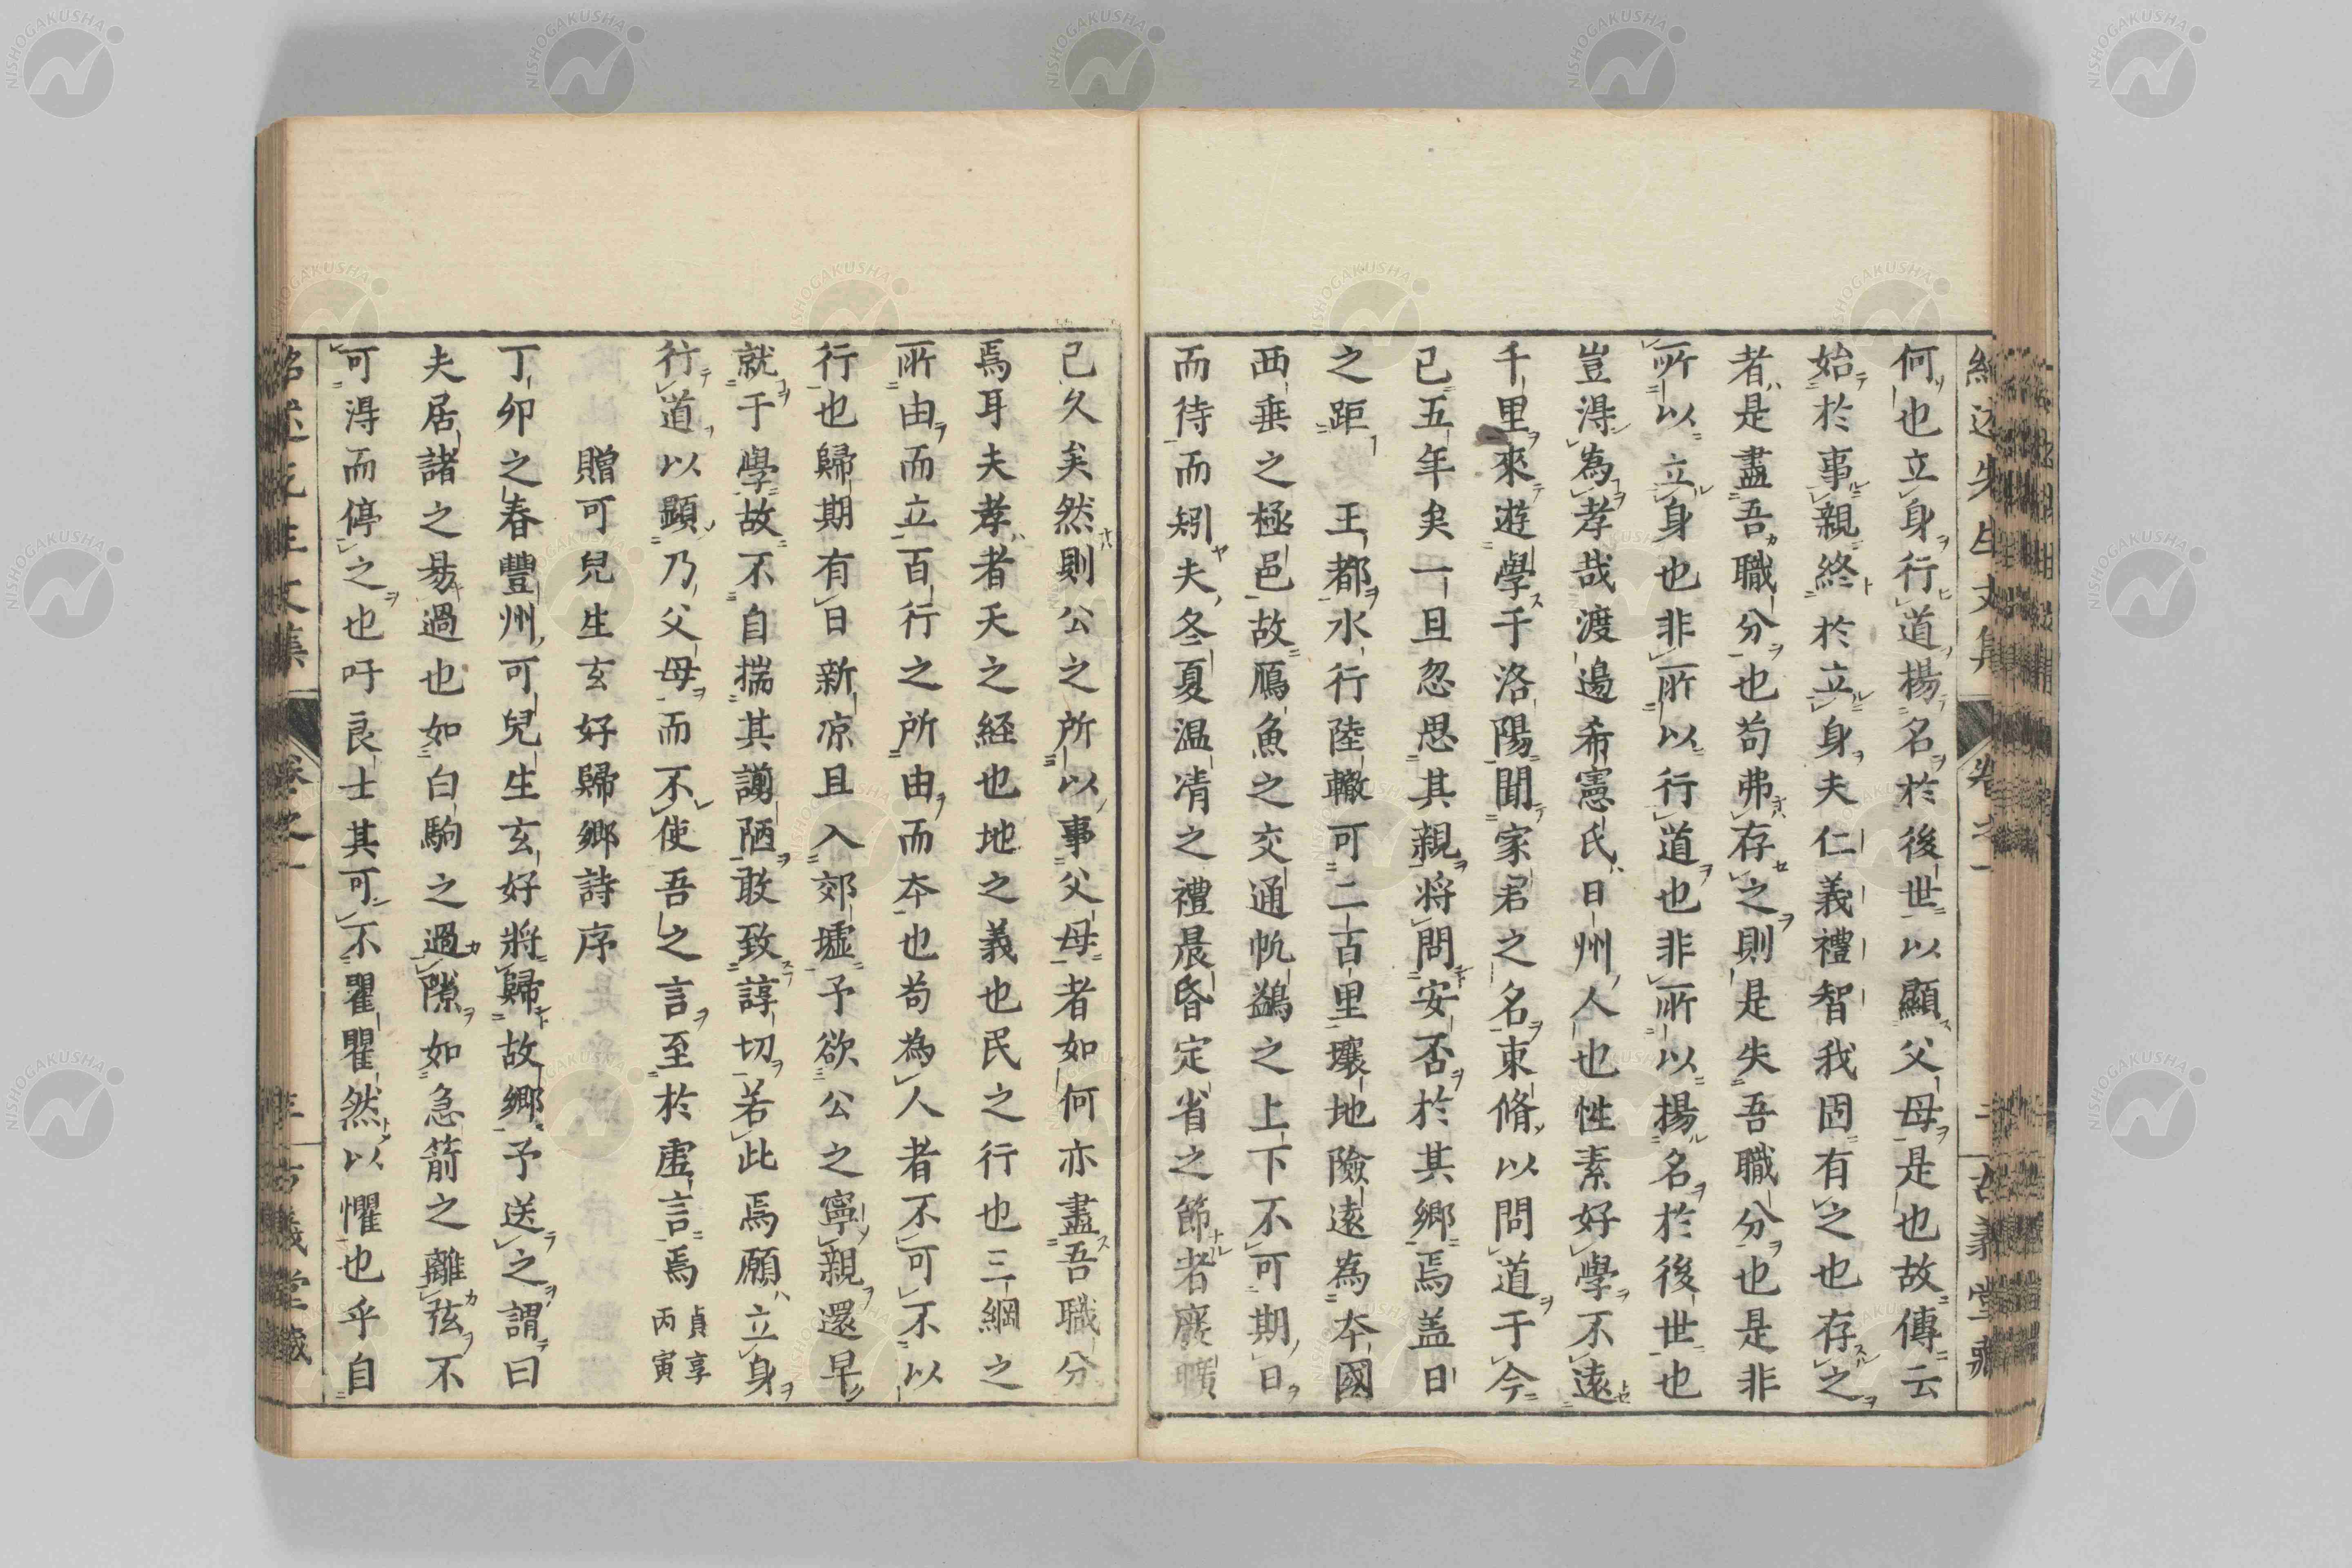 何也立身行道楊名於後世以顯父母是也故傳云
始於事親終於立身夫仁義禮智我固有之也存之
者是盡吾職分也苟弗存之則是失吾職分也是非
所以立身也非所以行道也非所以揚名於後世也
豈得為孝哉渡邉希憲氏日州人也性素好學不遠
千里來遊學于洛陽聞家君之名束脩以問道于今
已五年矣一旦忽思其親将問安否於其郷焉盖日
之距 王都水行陸轍可二百里壤地險遠為夲國
西垂之極邑故鴈魚之交通帆鷁之上下不可期日
而待而矧夫冬夏温凊之禮晨昏定省之節者廢曠
已久矣然則公之所以事父母者如何亦盡吾職分
焉耳夫孝者天之経也地之義也民之行也三綱之
所由而立百行之所由而夲也苟為人者不可不以
行也歸期有日新凉且入郊墟予欲公之寧親還早
就于學故不自揣其謭陋敢致諄切若此焉願立身
行道以顕乃父母而不使吾之言至於虚言焉 貞享丙寅
贈可兒生玄好歸郷詩序
丁卯之春豐州可兒生玄好將歸故郷予送之謂曰
夫居諸之易過也如白駒之過隙如急箭之離弦不
可得而停之也吁良士其可不瞿瞿然以懼也乎自
紹述先生文集 卷之一 二 古義堂藏
紹述先生文集 卷之一 三 古義堂藏
NISHOGAKUSHA